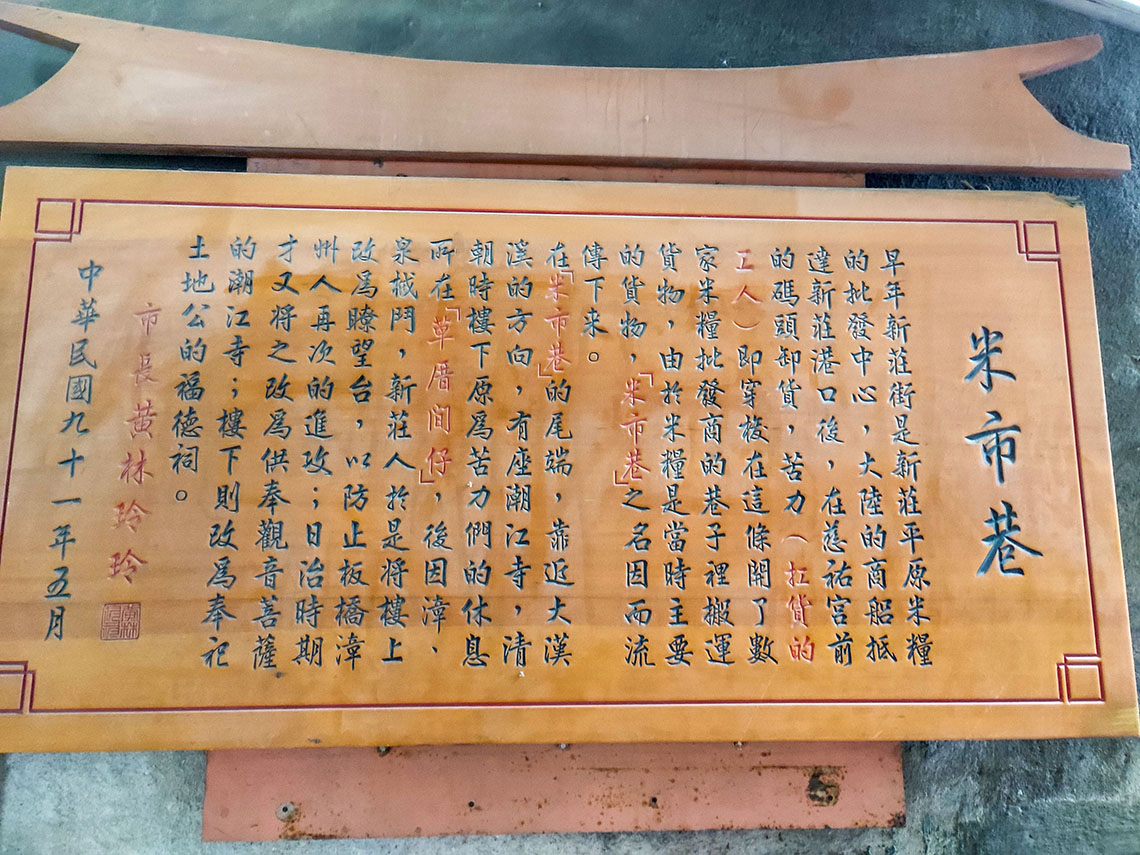 米市巷
早年新莊街是新莊平原米糧
的批發中心，大陸的商船抵
達新莊港口後，在慈祐宮前
的碼頭卸貨，苦力（扛貨的
工人）即穿梭在這條開了數
家米糧批發商的巷子裡搬運
貨物，由於米糧是當時主要
的貨物，「米市巷」之名因而流
傳下来。
在「米市巷」的尾端，靠近大漢
溪的方向，有座潮江寺，清
朝時樓下原為苦力們的休息
所在「草厝间仔」，後因漳、
泉械鬥，新莊人於是將樓上
改為瞭望台，以防止板橋漳
州人再次的進攻；日治時期
才又將之改為供奉觀音菩薩
的潮江寺；樓下則改為奉祀
土地公的福德祠。
市長黃林玲玲
中華民國九十一年五月